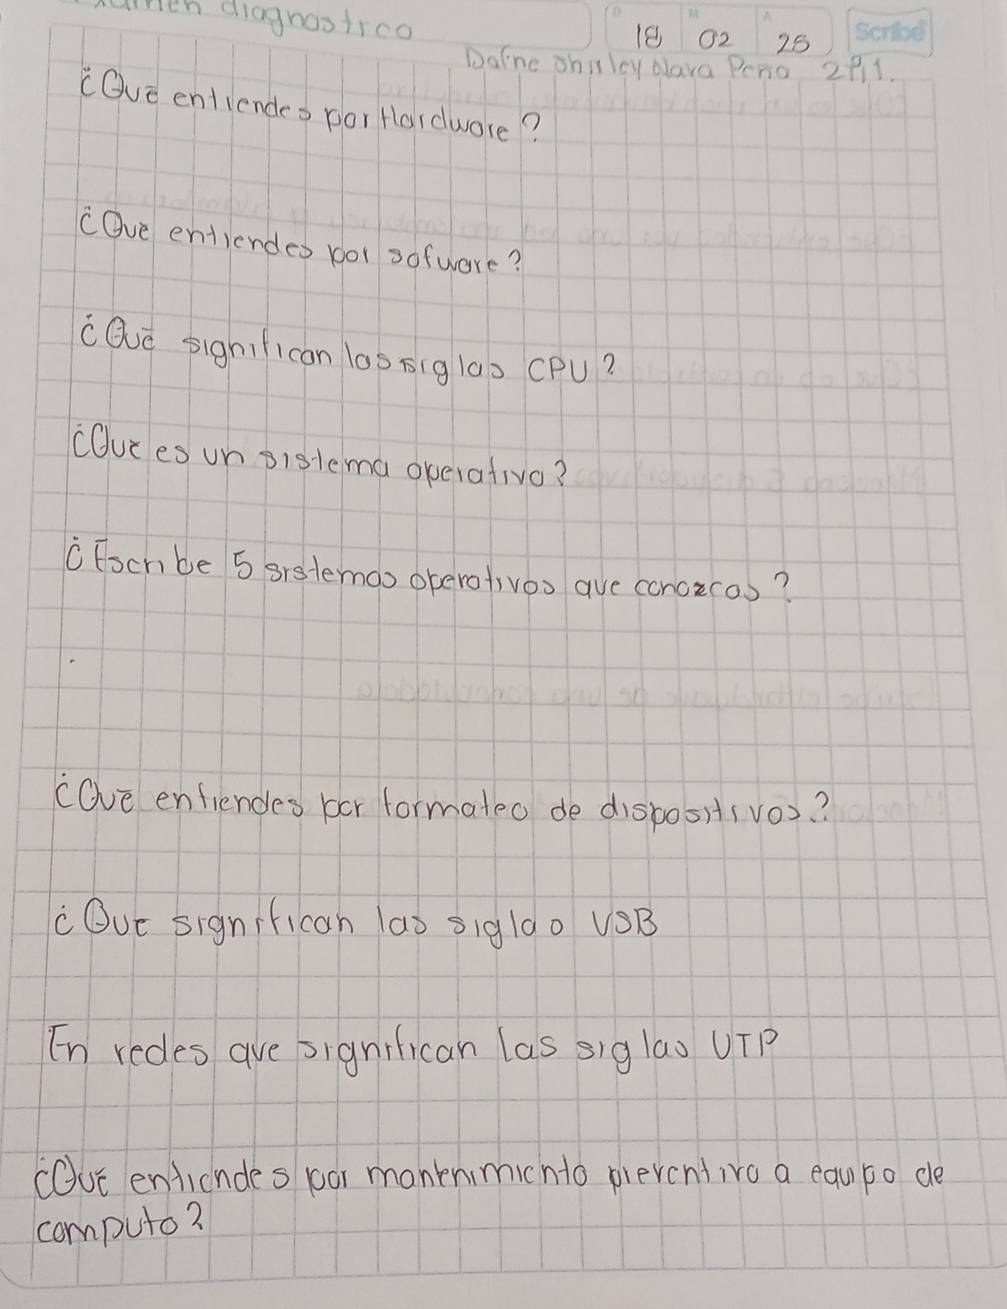 diagnostico
18 02 25 Scribe
Dafne Shirley Nava 2°P11.
¿Qué entiendes por Hardware?
¿Que entiendes por sofware?
¿Qué significan las siglas CPU?
¿Que es un sistema operativo?
¿Escribe 5 sistemas operativos que conozcas?
¿Qué entiendes por formateo de dispositivos?
¿Que significan las siglas USB
En redes que significan las siglas UTP
¿Que entiendes por mantenimiento preventivo a equipo de
computo?